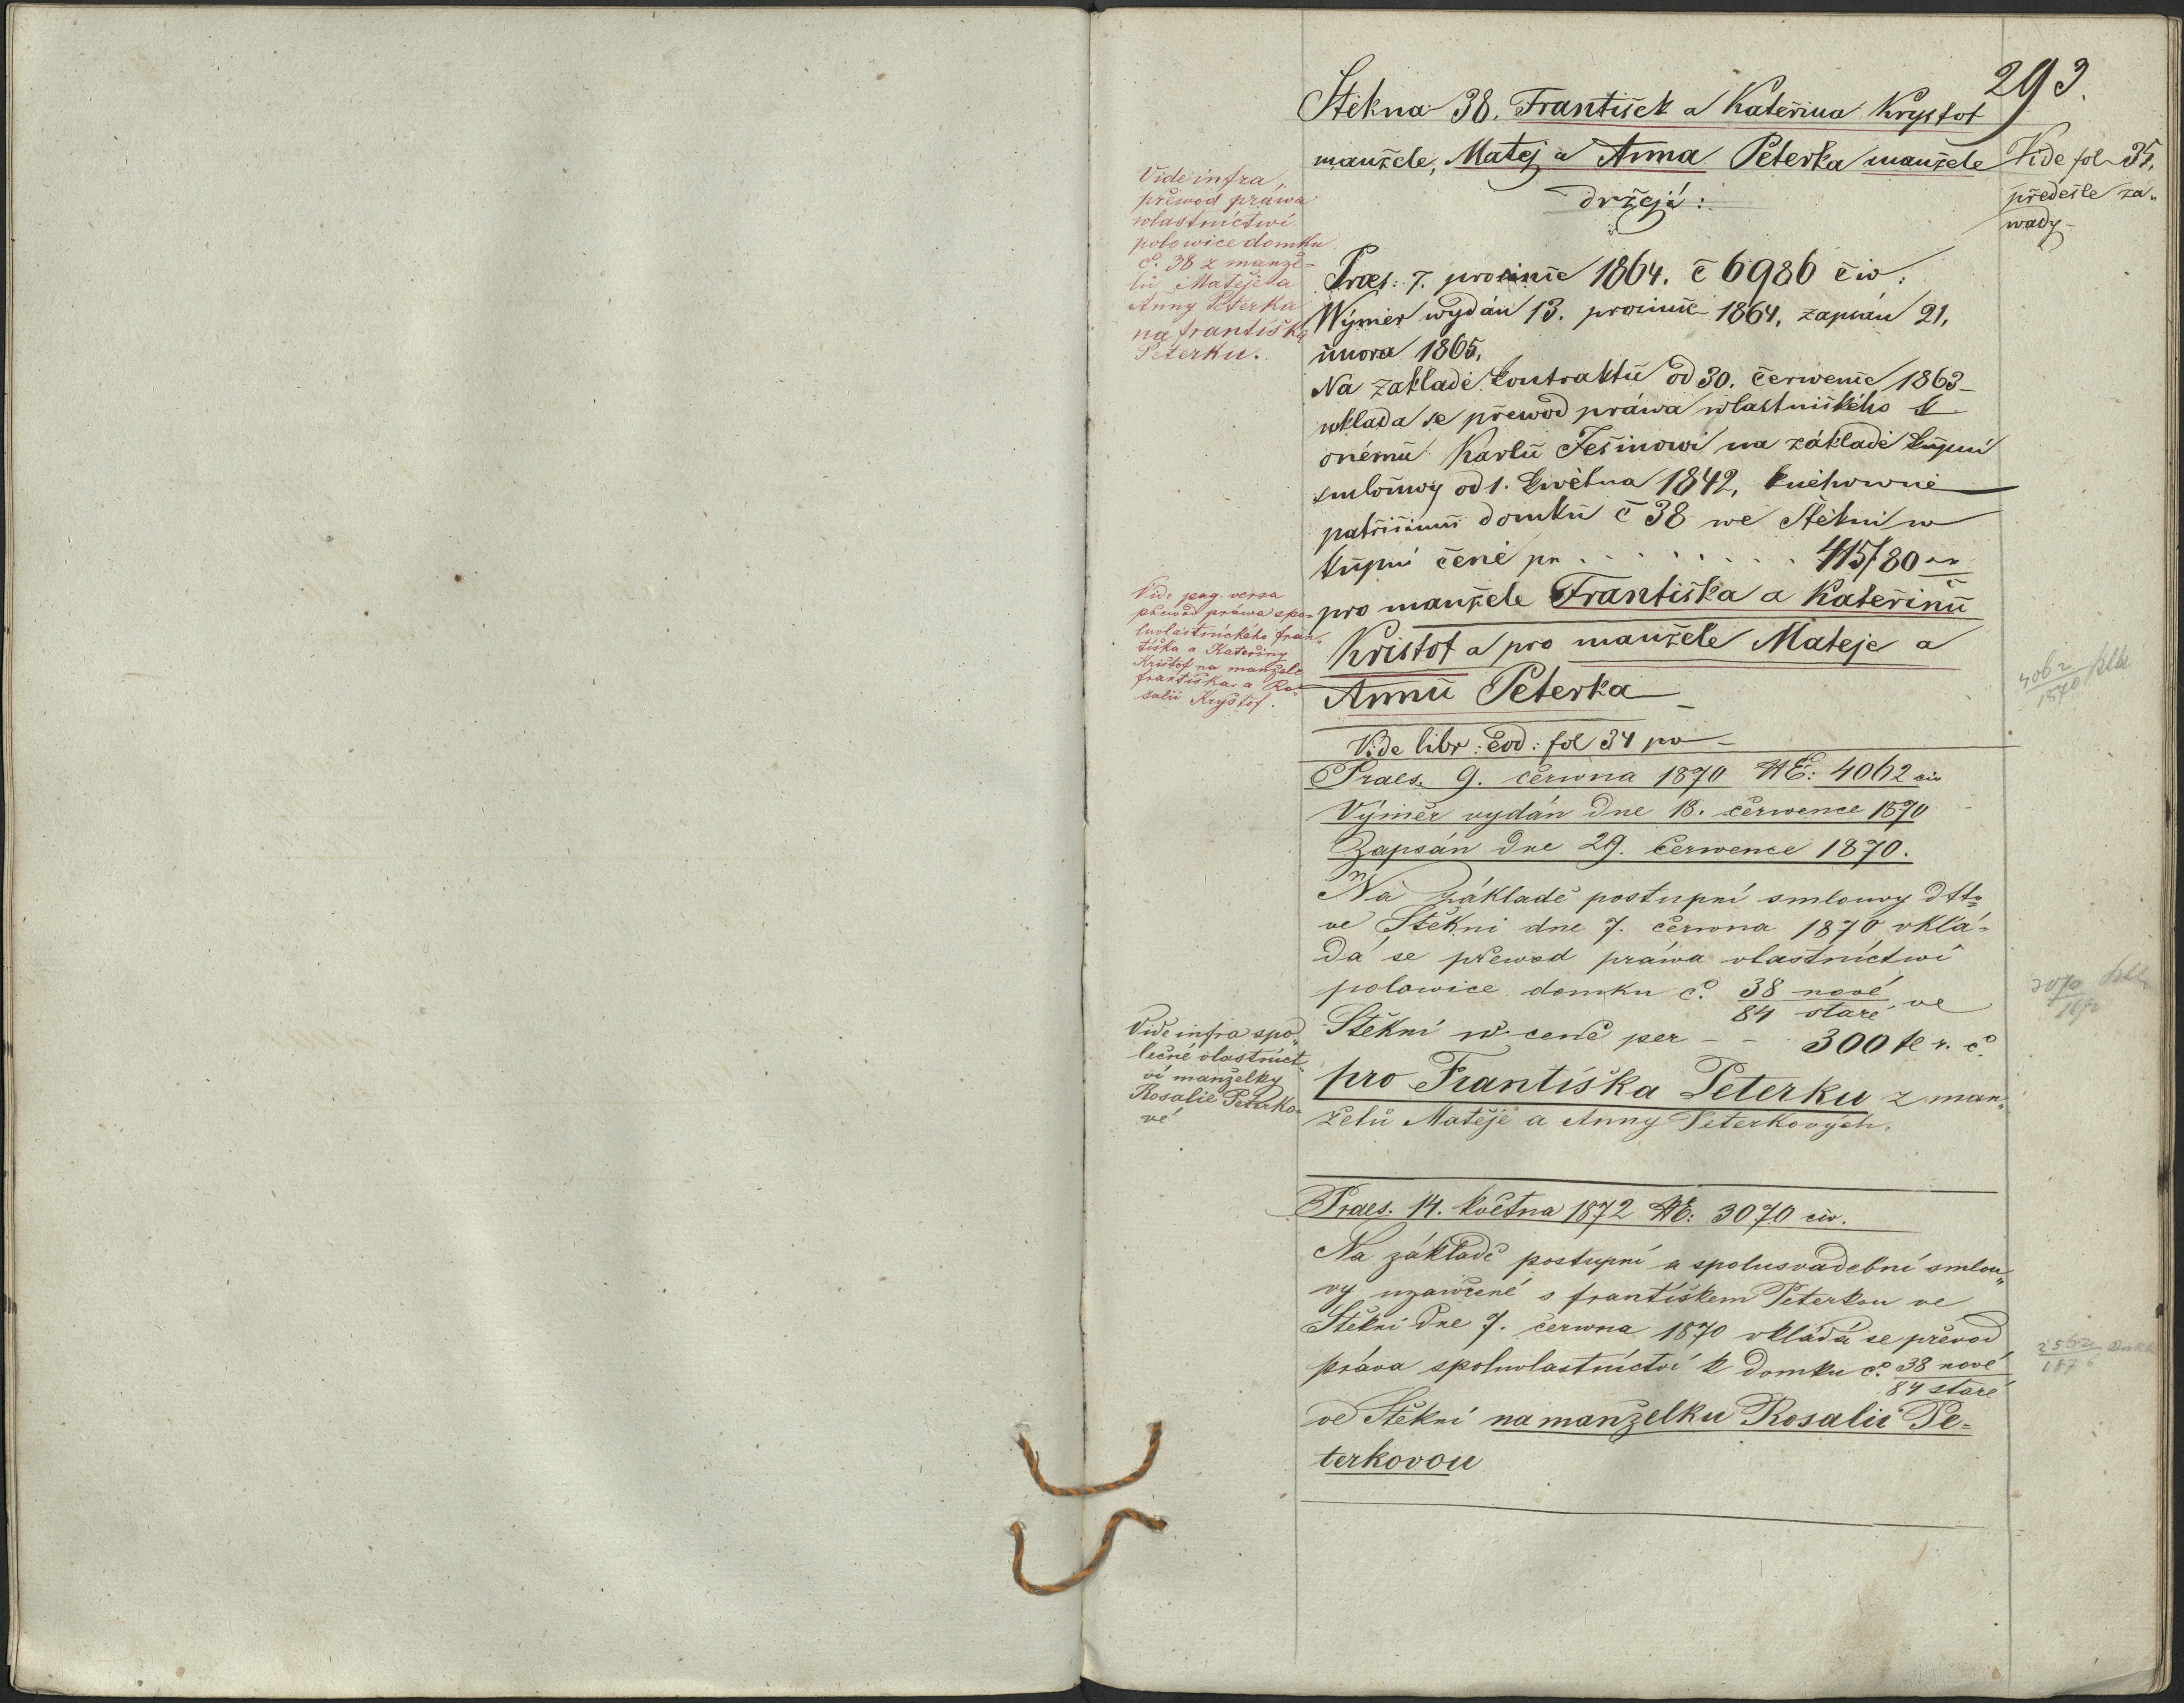 293.
Štěkna 38. František a Kateřina Krystof
manžele, Matěj a Anna Peterka manžele
držejí:
Vide fol 35,
předešle za„
wady
Vide infra,
přewod práwa
wlastnictwí
polowice domku
č. 38 z manže-
lů Matěje a
Anny Peterka
na Františka
Peterku.
Praes: 7. prosince 1864. č 6986 civ:
Wýměr wydán 13. prosince 1864, zapsán 21,
února 1865,
Na zakladě kontraktu od 30. července 1863
wklada se přewod práwa wlastnického k
onému Karlu Ješinowi na základě kupní
smlouwy od 1. kwětna 1842, knéhowně
patřicimu domku č 38 we Štěkni w
kupní ceně pr . . . . . . . . 415f 80 xr
pro manžele Františka a Kateřinu
Kristof a pro manžele Matěje a
Annu Peterka
Vide pag. versa
přewod práwa spo-
luvlastnického Fran„
tiška a Kateřiny
Krištof na manžele
Františka a Ro-
salii Kryštof.
4062
1870
Vide libr: eod: fol 34 po
Praes. 9. června 1870 NE: 4062 civ
Výměr vydán dne 13. čerwence 1870
Zapsán dne 29. čerwence 1870.
Na základě postupní smlouvy dtto
ve Štěkni dne 7. června 1870 vklá-
dá se přewod práwa vlastnictwí
polowice domku č. 38 nové
84 staré ve
Štěkni w ceně per - - 300 f r. č.
pro Františka Peterku z man„
želů Matěje a Anny Peterkových.
Vide infra spo„
lečné vlastnict„
ví manželky
Rosalie Peterko-
vé
3070
1872
Praes. 14. května 1872 NE: 3070 civ.
Na základě postupní a spolusvadební smlou„
vy uzawřené s Františkem Peterkou ve
Štěkni dne 7. června 1870 vkládá se převod
práva spoluvlastnictví k domku č. 38 nové
84 staré
ve Štěkni na manželku Rosalii Pe-
terkovou
2562
1876